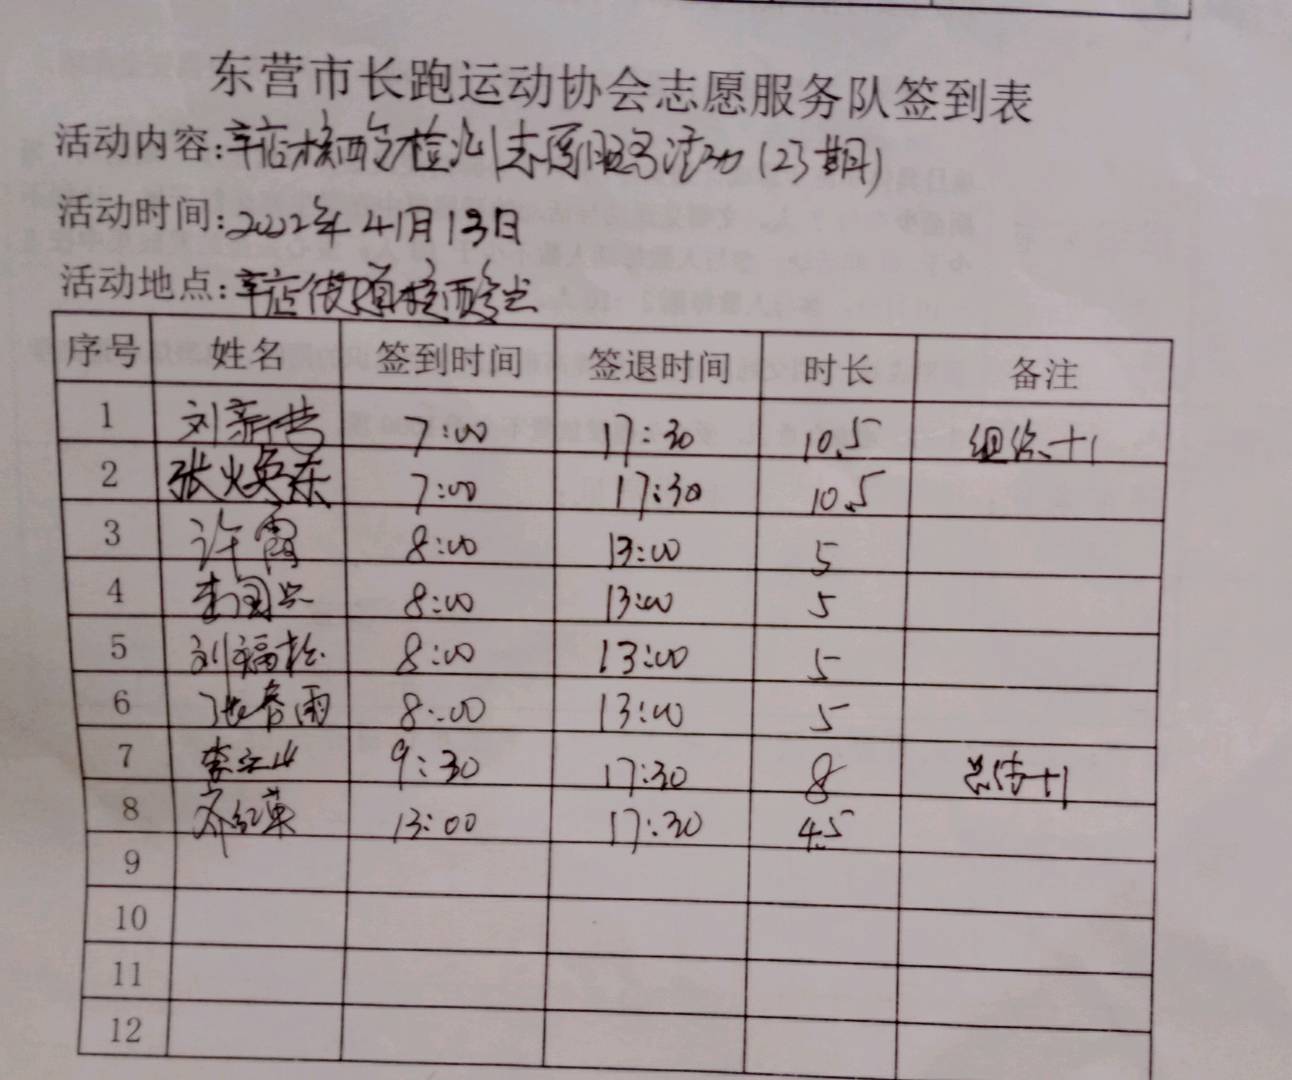 东营市长跑运动协会志愿服务队签到表
活动内容:辛店核酸检测志愿服务活动(23期)
活动时间:2022年4月13日
活动地点:辛店街道核酸点
序号 姓名 签到时间 签退时间 时长 备注
1 刘新营 7:00 17:30 10.5 组织+1
2 张焕东 7:00 17:30 10.5
3 许霞 8:00 13:00 5
4 李国兴 8:00 13:00 5
5 刘福松 8:00 13:00 5
6 张春雨 8:00 13:00 5
7 李立山 9:30 17:30 8 +1
8 齐红英 13:00 17:30 4.5
9
10
11
12